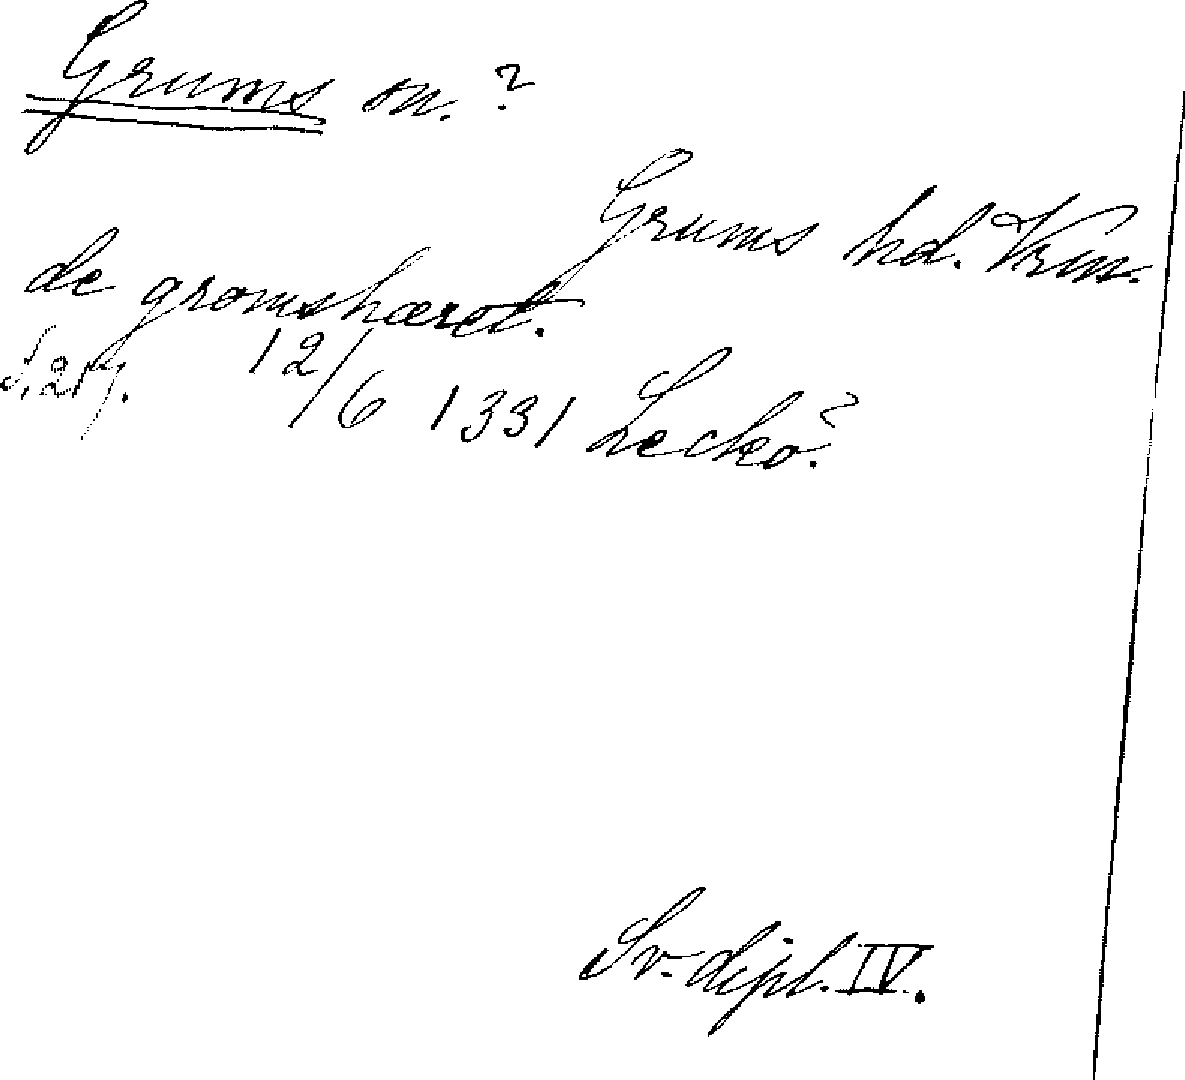 Grums on.?
Grums hd. Vrm.
de gromshæret.
S. 217. 12/6 1331 Leckö?
Sv. dipl. IV.